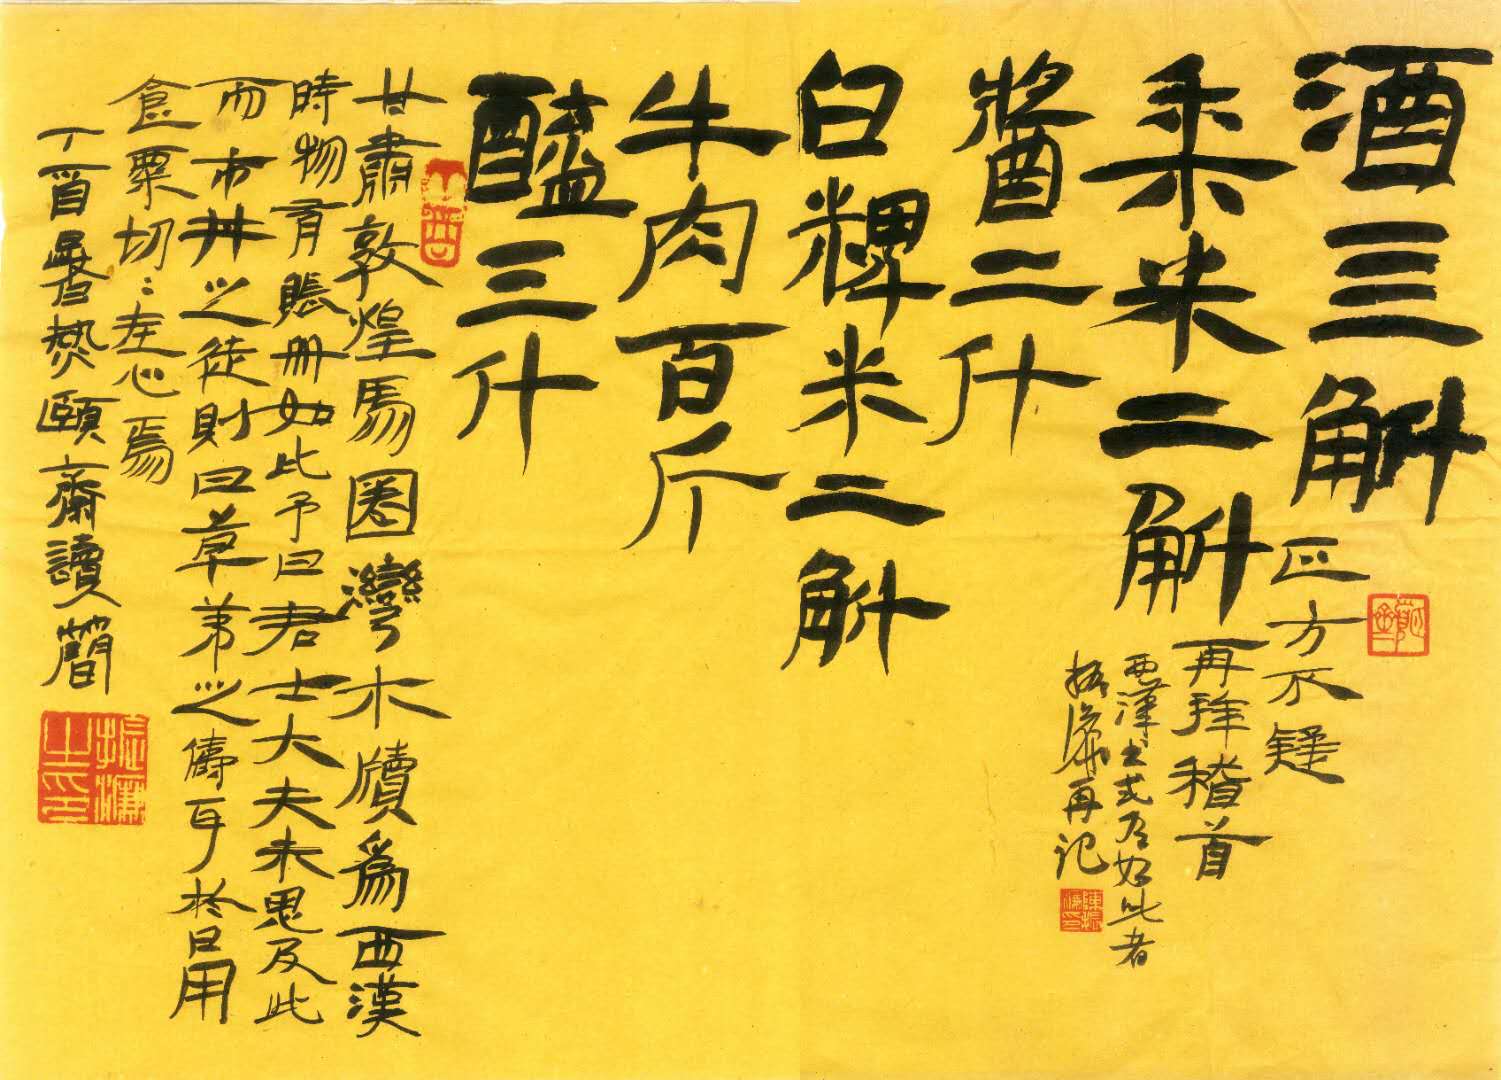 酒三斛
正方不疑
黍米二斛
再拜稽首
西漢书式有如此者
振濂再记
醬二斗
白粺米二斛
牛肉百斤
醯三斗
丁酉
甘肅敦煌馬圈灣木牘為西漢
時物有賬册如此予曰君士大夫未思及此
而市井之徒則曰草弟之儔耳於日用
食粟切〻在心焉
丁酉暑热頤齋讀簡